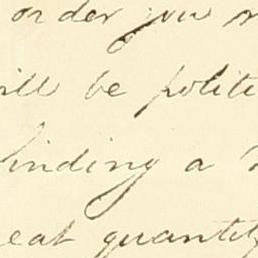 order you
ill be polite
inding a
eat quantity